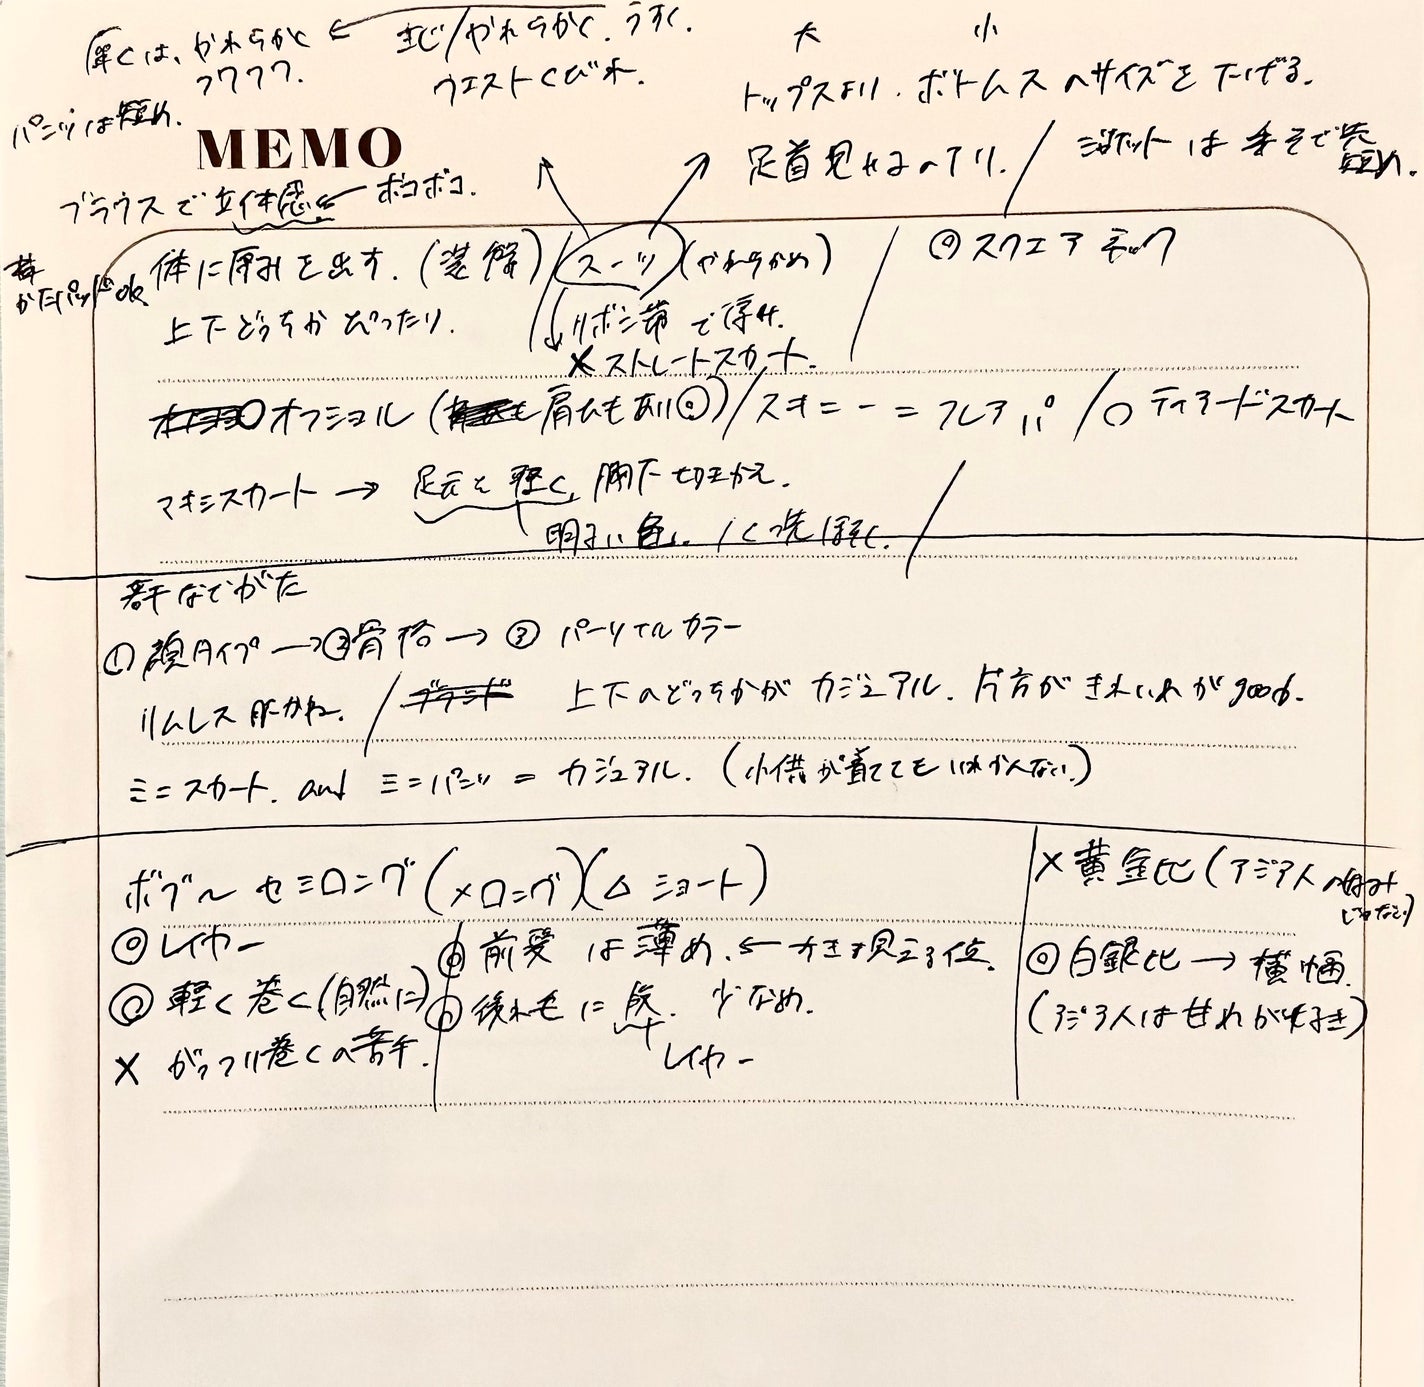 厚くは、やわらかく ← 生じ/やわらかく、うすく.
フワフワ.
ウエストくびれ.
大 小
トップスより、ボトムスのサイズを下げる.
パンツは短め.
MEMO
足首見せるのアリ. / ジャケットは手そで先 短め.
ブラウスで立体感を ← ボコボコ.
かたパッド ok
体に厚みを出す. (装飾) / スーツ (やわらかめ) / ◎スクエアネック
上下どっちかぴったり. / ↓リボン等で
×ストレートスカート.
オフショル (肩ひもあり◎) / スキニー = フレアパ / ○ ティアードスカート
マキシスカート → 足元を軽く、膝下切りかえ.
明るい色. /
若干なでがた
① 顔タイプ → ②骨格 → ③ パーソナルカラー
リムレス / 上下のどっちかがカジュアル. 片方がきれいめがgood.
ミニスカート. and ミニパンツ = カジュアル. (小供が着てても いわかんない.)
ボブ〜セミロング (×ロング)(△ ショート)
× 黄金比 (アジア人の好み じゃない)
◎ レイヤー
◎ 前髪は薄め. ← すきま見える位.
◎ 白銀比 → 横幅.
◎ 軽く巻く(自然に)
◎ 後れ毛に 少なめ.
(アジア人は甘めが好き)
× がっつり巻くの苦手.
レイヤー